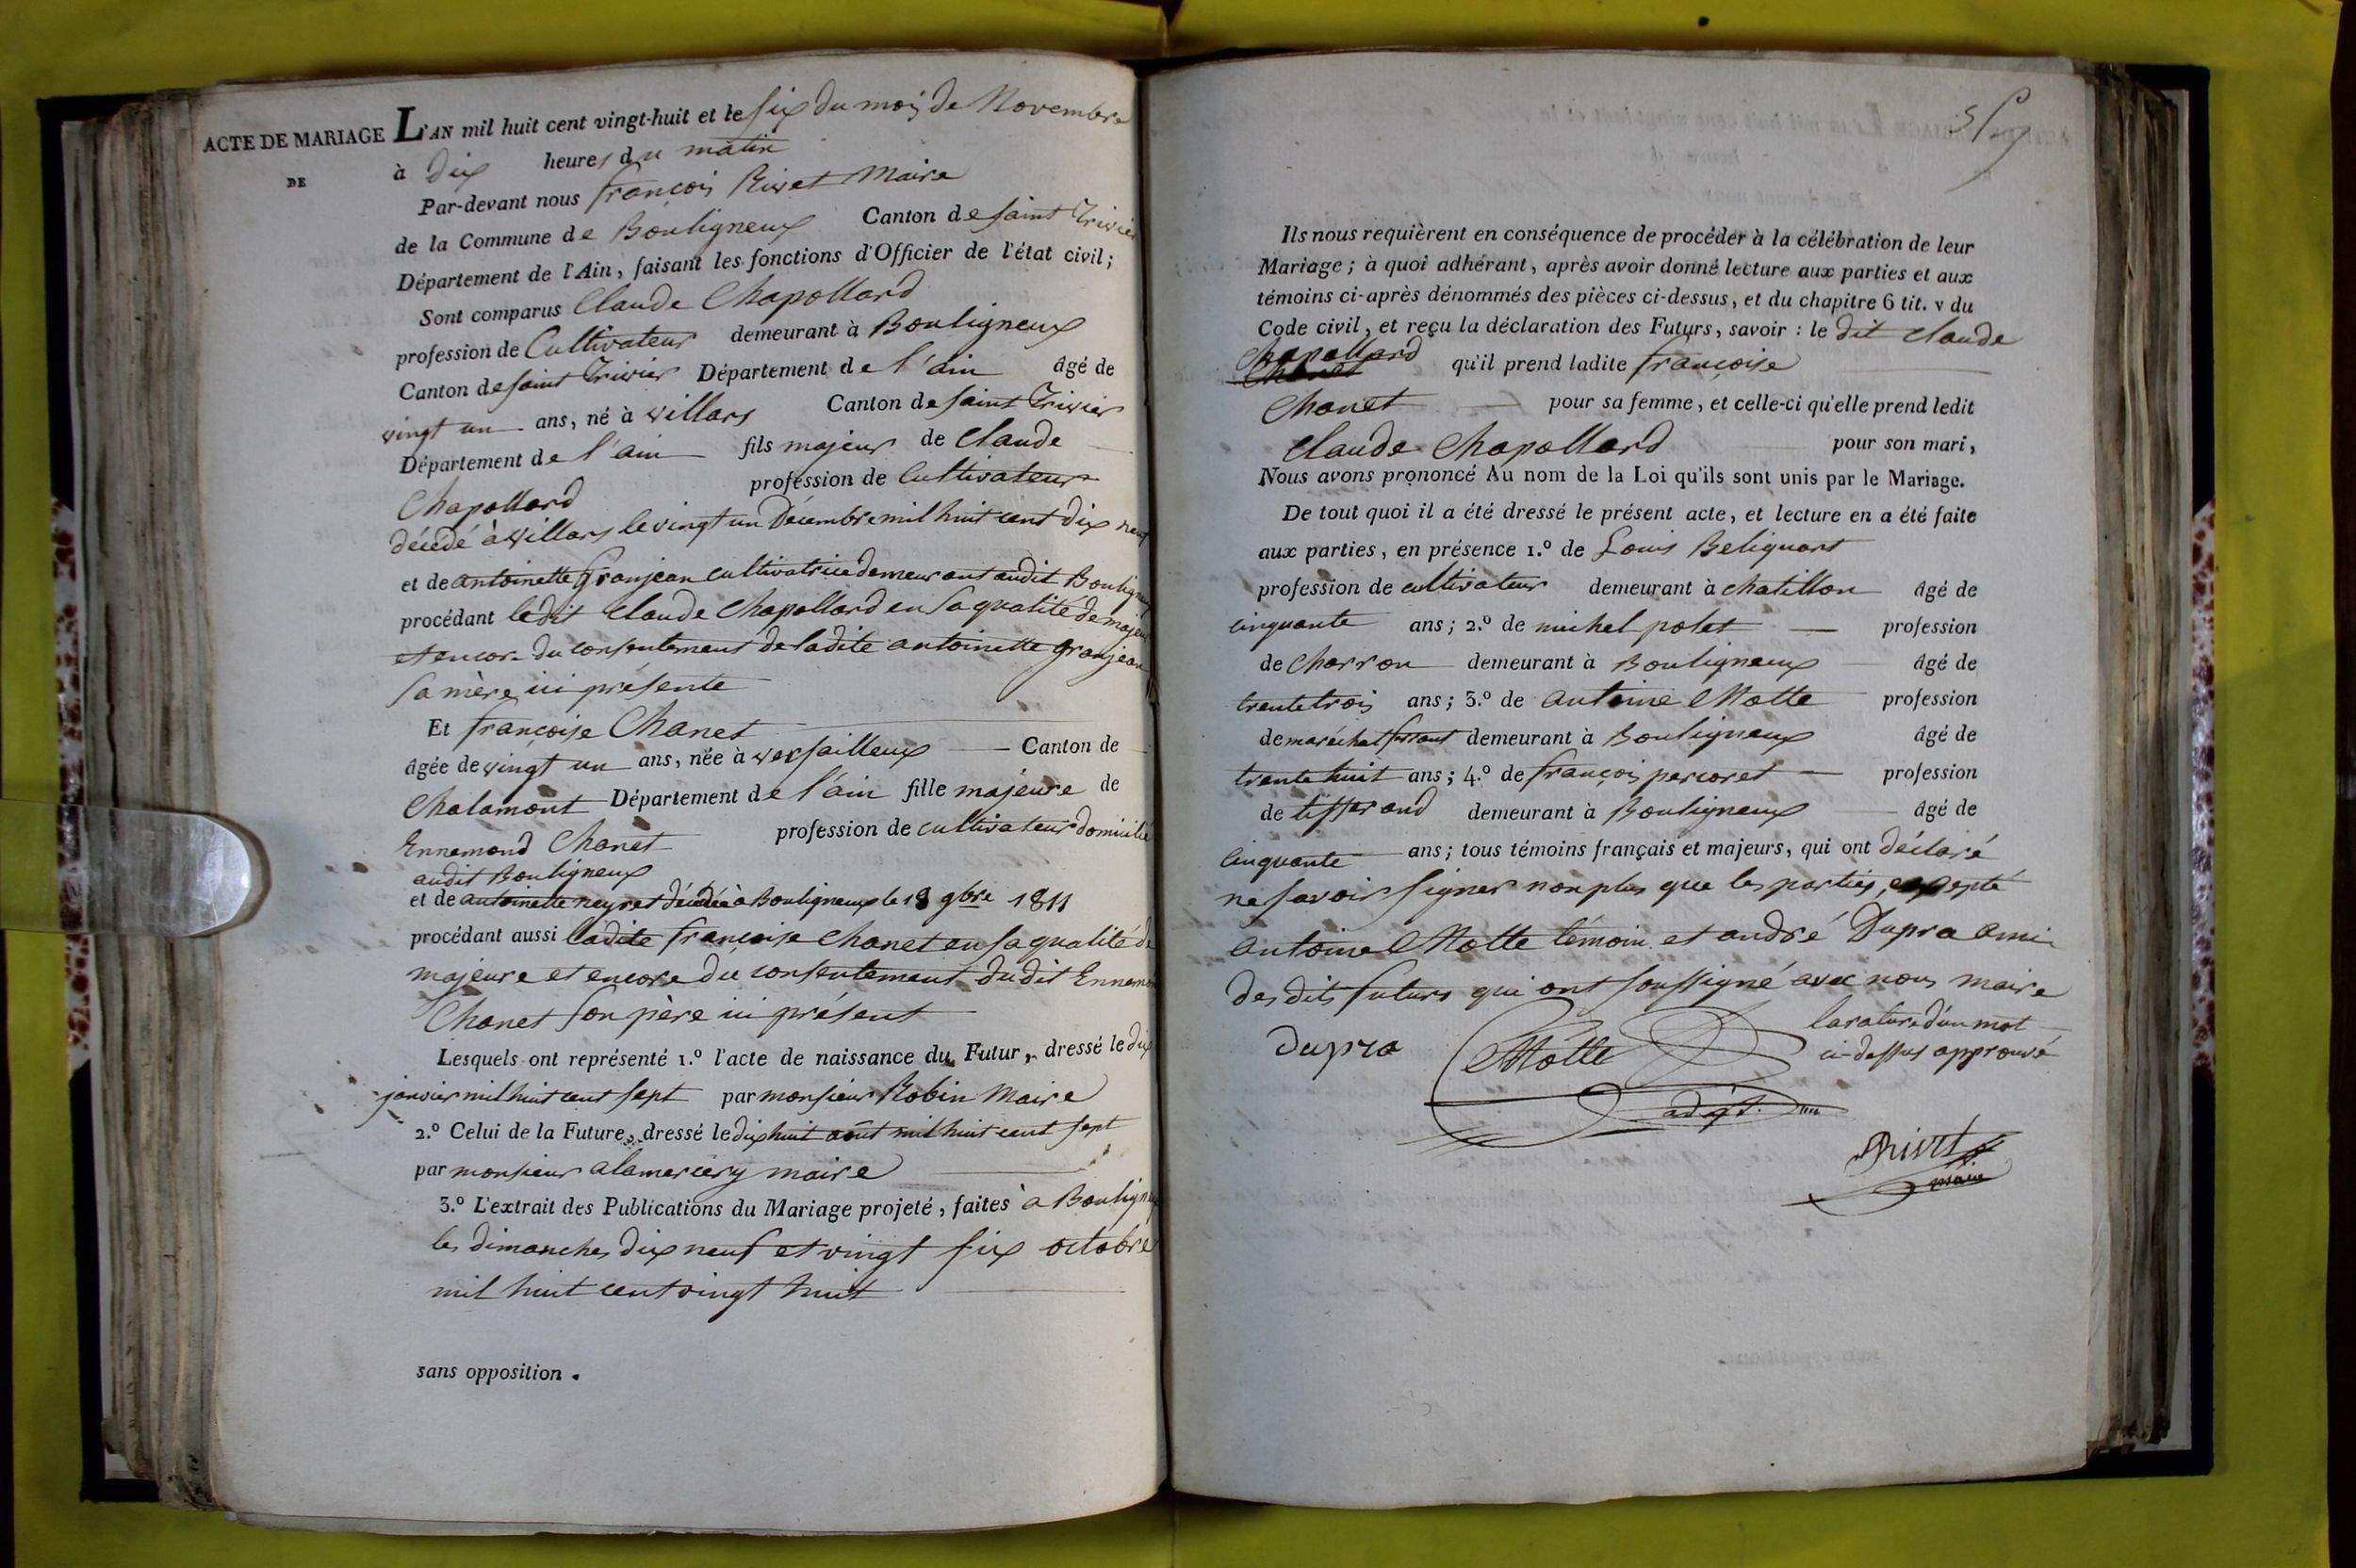 ACTE DE MARIAGE
DE
L'AN mil huit cent vingt-huit et le six du mois de Novembre
à Dix heures du matin
Par-devant nous françois Rivet Maire
de la Commune de Bouligneux Canton de saint Trivier
Département de l'Ain, faisant les fonctions d'Officier de l'état civil;
Sont comparus Claude Chapollard
profession de Cultivateur demeurant à Bouligneux
Canton de saint Trivier Département de l'ain âgé de
vingt un ans, né à villars Canton de saint Trivier
Département de l'ain fils majeur de Claude
Chapollard profession de Cultivateur
décédé à villars le vingt un Décembre mil huit cent dix neuf
et de antoinette Granjean cultivatrice demeurant audit Bouligneux
procédant ledit Claude Chapollard en sa qualité de majeur
et encore du consentement de ladite antoinette granjean
sa mère ici présente
Et françoise Chanet
âgée de vingt un ans, née à versailleux Canton de
Chalamont Département de l'ain fille majeure de
Ennemond Chanet profession de cultivateur domicilié
audit Bouligneux
et de antoinette neyret décédée à Bouligneux le 18 9bre 1811
procédant aussi ladite françoise Chanet en sa qualité de
majeure et encore du consentement dudit Ennemond
Chanet son père ici présent
Lesquels ont représenté 1.º l'acte de naissance du Futur, dressé le dix
janvier mil huit cent sept par monsieur Robin Maire
2.º Celui de la Future, dressé le dix huit août mil huit cent sept
par monsieur alamercery maire
3.º L'extrait des Publications du Mariage projeté, faites à Bouligneux
les dimanches dix neuf et vingt six octobre
mil huit cent vingt huit
sans opposition.
Ils nous requièrent en conséquence de procéder à la célébration de leur
Mariage; à quoi adhérant, après avoir donné lecture aux parties et aux
témoins ci-après dénommés des pièces ci-dessus, et du chapitre 6 tit. v du
Code civil, et reçu la déclaration des Futurs, savoir: le dit claude
Chapollard
Chanet qu'il prend ladite françoise
Chanet pour sa femme, et celle-ci qu'elle prend ledit
Claude Chapollard pour son mari,
Nous avons prononcé Au nom de la Loi qu'ils sont unis par le Mariage.
De tout quoi il a été dressé le présent acte, et lecture en a été faite
aux parties, en présence 1.º de Louis Beliquart
profession de cultivateur demeurant à chatillon âgé de
cinquante ans; 2.º de michel polet profession
de Charron demeurant à Bouligneux âgé de
trente trois ans; 3.º de antoine Motte profession
de maréchal ferrant demeurant à Bouligneux âgé de
trente huit ans; 4.º de françois percoret profession
de tisserand demeurant à Bouligneux âgé de
cinquante ans; tous témoins français et majeurs, qui ont déclaré
ne savoir signer non plus que les parties, excepté
antoine Motte témoin et andré Dupra ami
des dits futurs qui ont soussigné avec nous maire
la rature d'un mot
ci-dessus approuvé
Dupra
Motte
adjt.
Rivet
maire